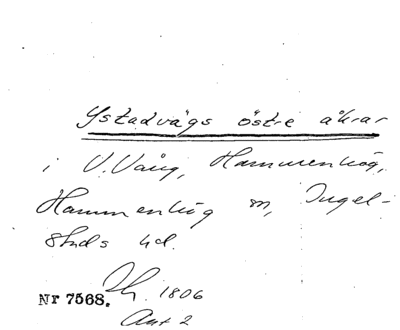 Ystadvägs östre åkrar
i V.Vång, Hammenhög,
Hammenhög sn, Ingel-
stads hd.
1806
Nr 7568.
Akt 2